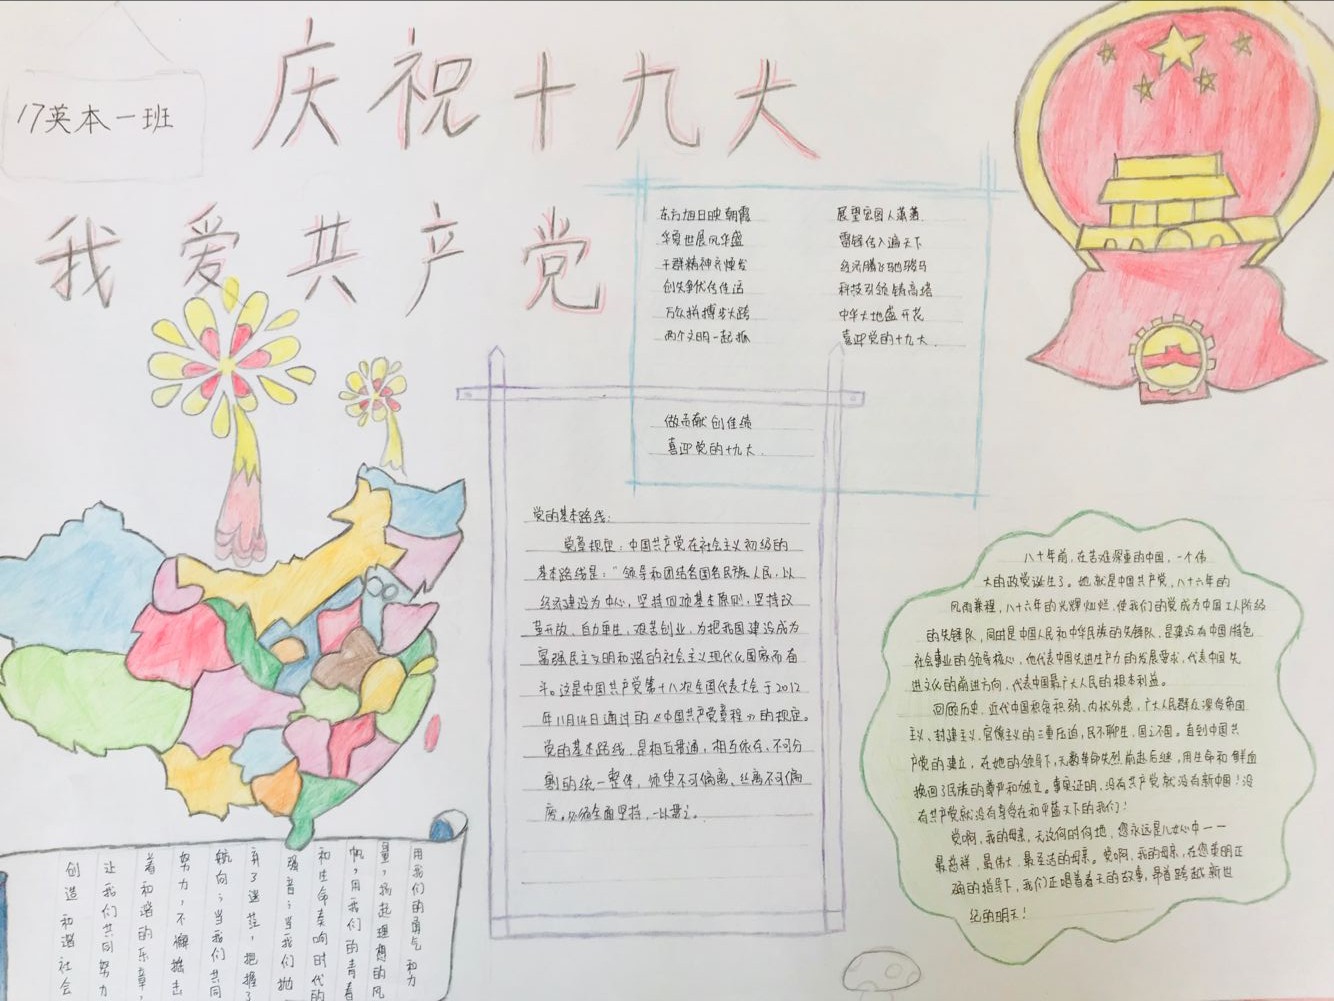 17英本一班
庆祝十九大
我爱共产党
东方旭日映朝霞
华夏世展风华盛
干群精神齐焕发
创先争优传佳话
万众拼搏步大跨
两个文明一起抓
展望宏图人潇潇
雷锋传入遍天下
经济腾飞驰骏马
科技引领铸高塔
中华大地盛开花
喜迎党的十九大
做贡献创佳绩
喜迎党的十九大
党的基本路线:
党章规定:中国共产党在社会主义初级的
基本路线是:“领导和团结各国各民族人民,以
经济建设为中心,坚持四项基本原则,坚持改
革开放,自力更生,艰苦创业,为把我国建设成为
富强民主文明和谐的社会主义现代化国家而奋
斗。这是中国共产党第十八次全国代表大会于2012
年11月14日通过的《中国共产党章程》的规定。
党的基本路线,是相互贯通,相互依存、不可分
割的统一整体,须臾不可偏离、丝离不可偏
废。必须全面坚持,一以贯之。
八十年前,在苦难深重的中国,一个伟
大的政党诞生了。她就是中国共产党,八十六年的
风雨兼程,八十六年的火辉灿烂,使我们的党成为中国工人阶级
的先锋队,同时是中国人民和中华民族的先锋队,是建设有中国特色
社会事业的领导核心,他代表中国先进生产力的发展要求,代表中国先
进文化的前进方向,代表中国最广大人民的根本利益。
回顾历史,近代中国积贫积弱,内忧外患,广大人民群众深受帝国
主义、封建主义、官僚主义的三重压迫,民不聊生,国之不国。直到中国共
产党的建立,在她的领导下,无数革命先烈前赴后继,用生命和鲜血
换回了民族的尊严和独立。事实证明,没有共产党就没有新中国!没
有共产党就没有享受在和平蓝天下的我们!
党啊,我的母亲,无论何时何地,您永远是儿女心中一一
最慈祥,最伟大,最圣洁的母亲。党啊,我的母亲,在您英明正
确的指导下,我们正唱着春天的故事,昂首跨越新世
纪的明天!
用我们的勇气和力
量,扬起理想的风
帆,用我们的青春
和生命奏响时代的
强音;当我们抛
弃了迷茫,把握了
航向;当我们共同
努力,不懈搏击
着和谐的乐章,
让我们共同努力
创造和谐社会